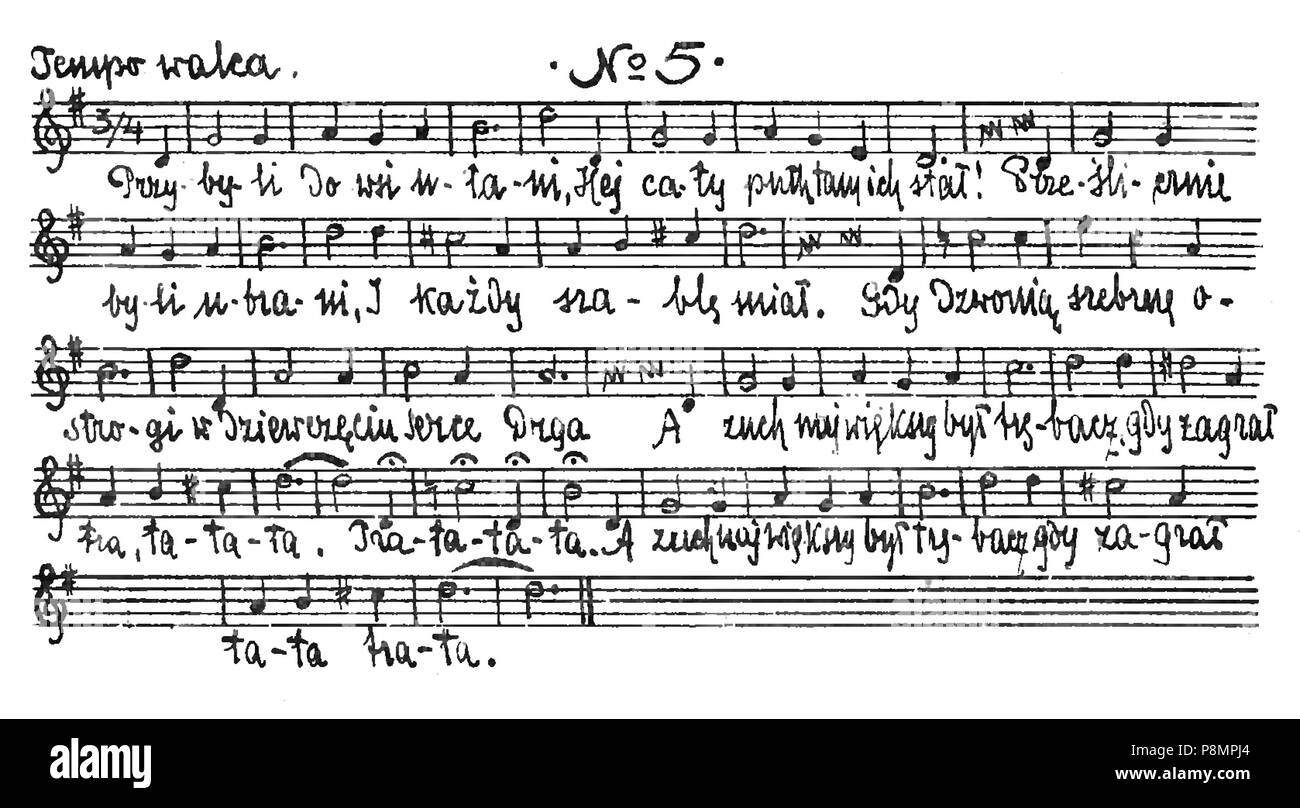 Tempo walca. · № 5 ·
3/4
Przy-by-li do wsi u-ła-ni, Hej ca-ły pułk tam ich stał! Prze-śli-cznie
by-li u-bra-ni, I każdy sza-blę miał. Gdy dzwonią srebrne o-
stro-gi w dziewczęciu serce drga A zuch największy był trę-bacz, gdy zagrał
tra, ta-ta-ta. Tra-ta-ta-ta. A zuch największy był trę-bacz gdy za-grał
ta-ta tra-ta.
alamy
Image ID: P8MPJ4
www.alamy.com